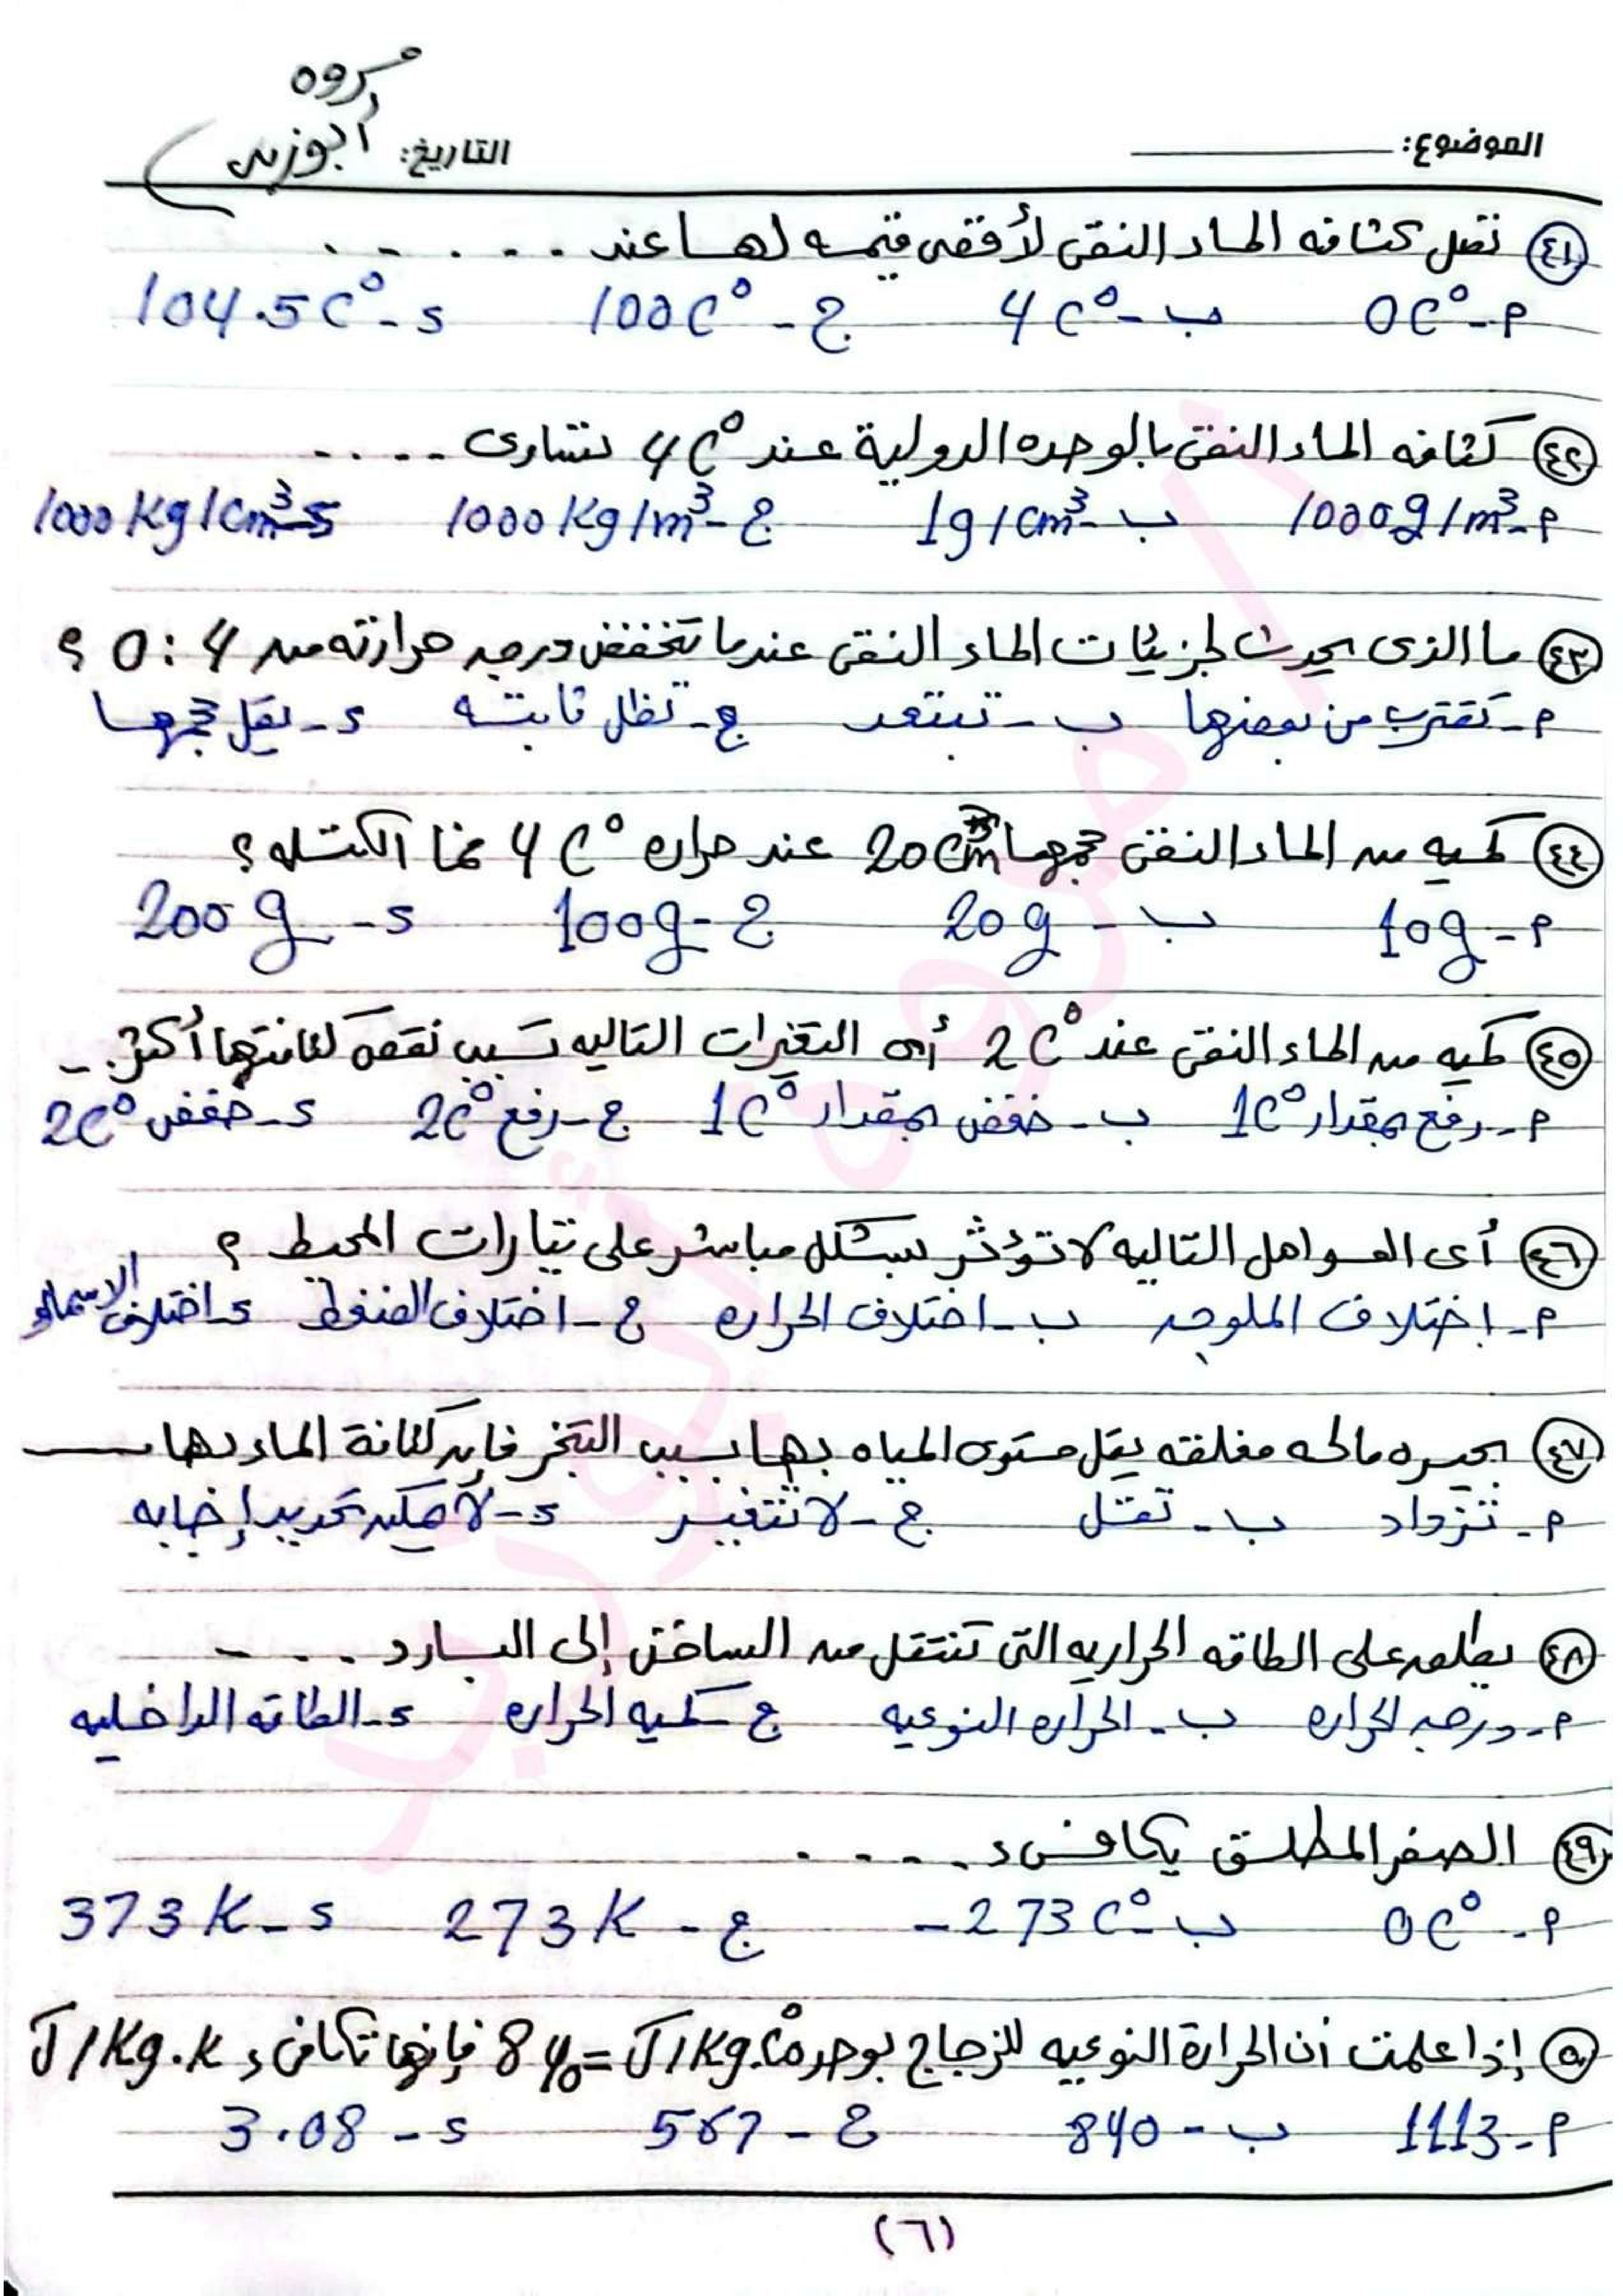 مروه
أبوزيد
الموضوع: التاريخ:
٤١ تصل كثافه الماء النقى لأقصى قيمه لها عند . . . . .
م- 0C° ب- 4C° ج- 100C° د- 104.5C°
٤٢ كثافه الماء النقى بالوحده الدولية عند 4C° تساوى - - . . .
م- 1000g/m³ ب- 1g/cm³ ج- 1000Kg/m³ د- 1000Kg/cm³
٤٣ ما الذى يحدث لجزيئات الماء النقى عندما تنخفض درجه حرارته من 4 : 0 ؟
م- تقترب من بعضها ب- تبتعد ج- تظل ثابته د- يقل حجمها
٤٤ كميه من الماء النقى حجمها 20cm³ عند حراره 4C° فما الكتله ؟
م- 10g ب- 20g ج- 100g د- 200g
٤٥ كميه من الماء النقى عند 2C° أى التغيرات التاليه تسبب نقص كثافتها أكثر . -
م- رفع بمقدار 1C° ب- خفض بمقدار 1C° ج- رفع 2C° د- خفض 2C°
٤٦ أى العوامل التاليه لا تؤثر بشكل مباشر على تيارات المحيط ؟
م- إختلاف الملوحه ب- اختلاف الحراره ج- اختلاف الضغط د- اختلاف الاسماك
٤٧ بحيره مالحه مغلقه يقل مستوى المياه بها بسبب التبخر فإن كثافة الماء بها
م- تزداد ب- تقل ج- لا تتغير د- لا يمكن تحديد إجابه
٤٨ يطلق على الطاقه الحراريه التى تنتقل من الساخن إلى البارد . . . -
م- درجه الحراره ب- الحراره النوعيه ج كميه الحراره د- الطاقه الداخليه
٤٩ الصفر المطلق يكافىء . - . . .
م- 0C° ب- -273C° ج- 273K د- 373K
٥٠ إذا علمت أن الحرارة النوعيه للزجاج بوحده J/Kg.C° = 840 فإنها تكافىء J/Kg.K
م- 1113 ب- 840 ج- 567 د- 3.08
(٦)
مروه أبوزيد